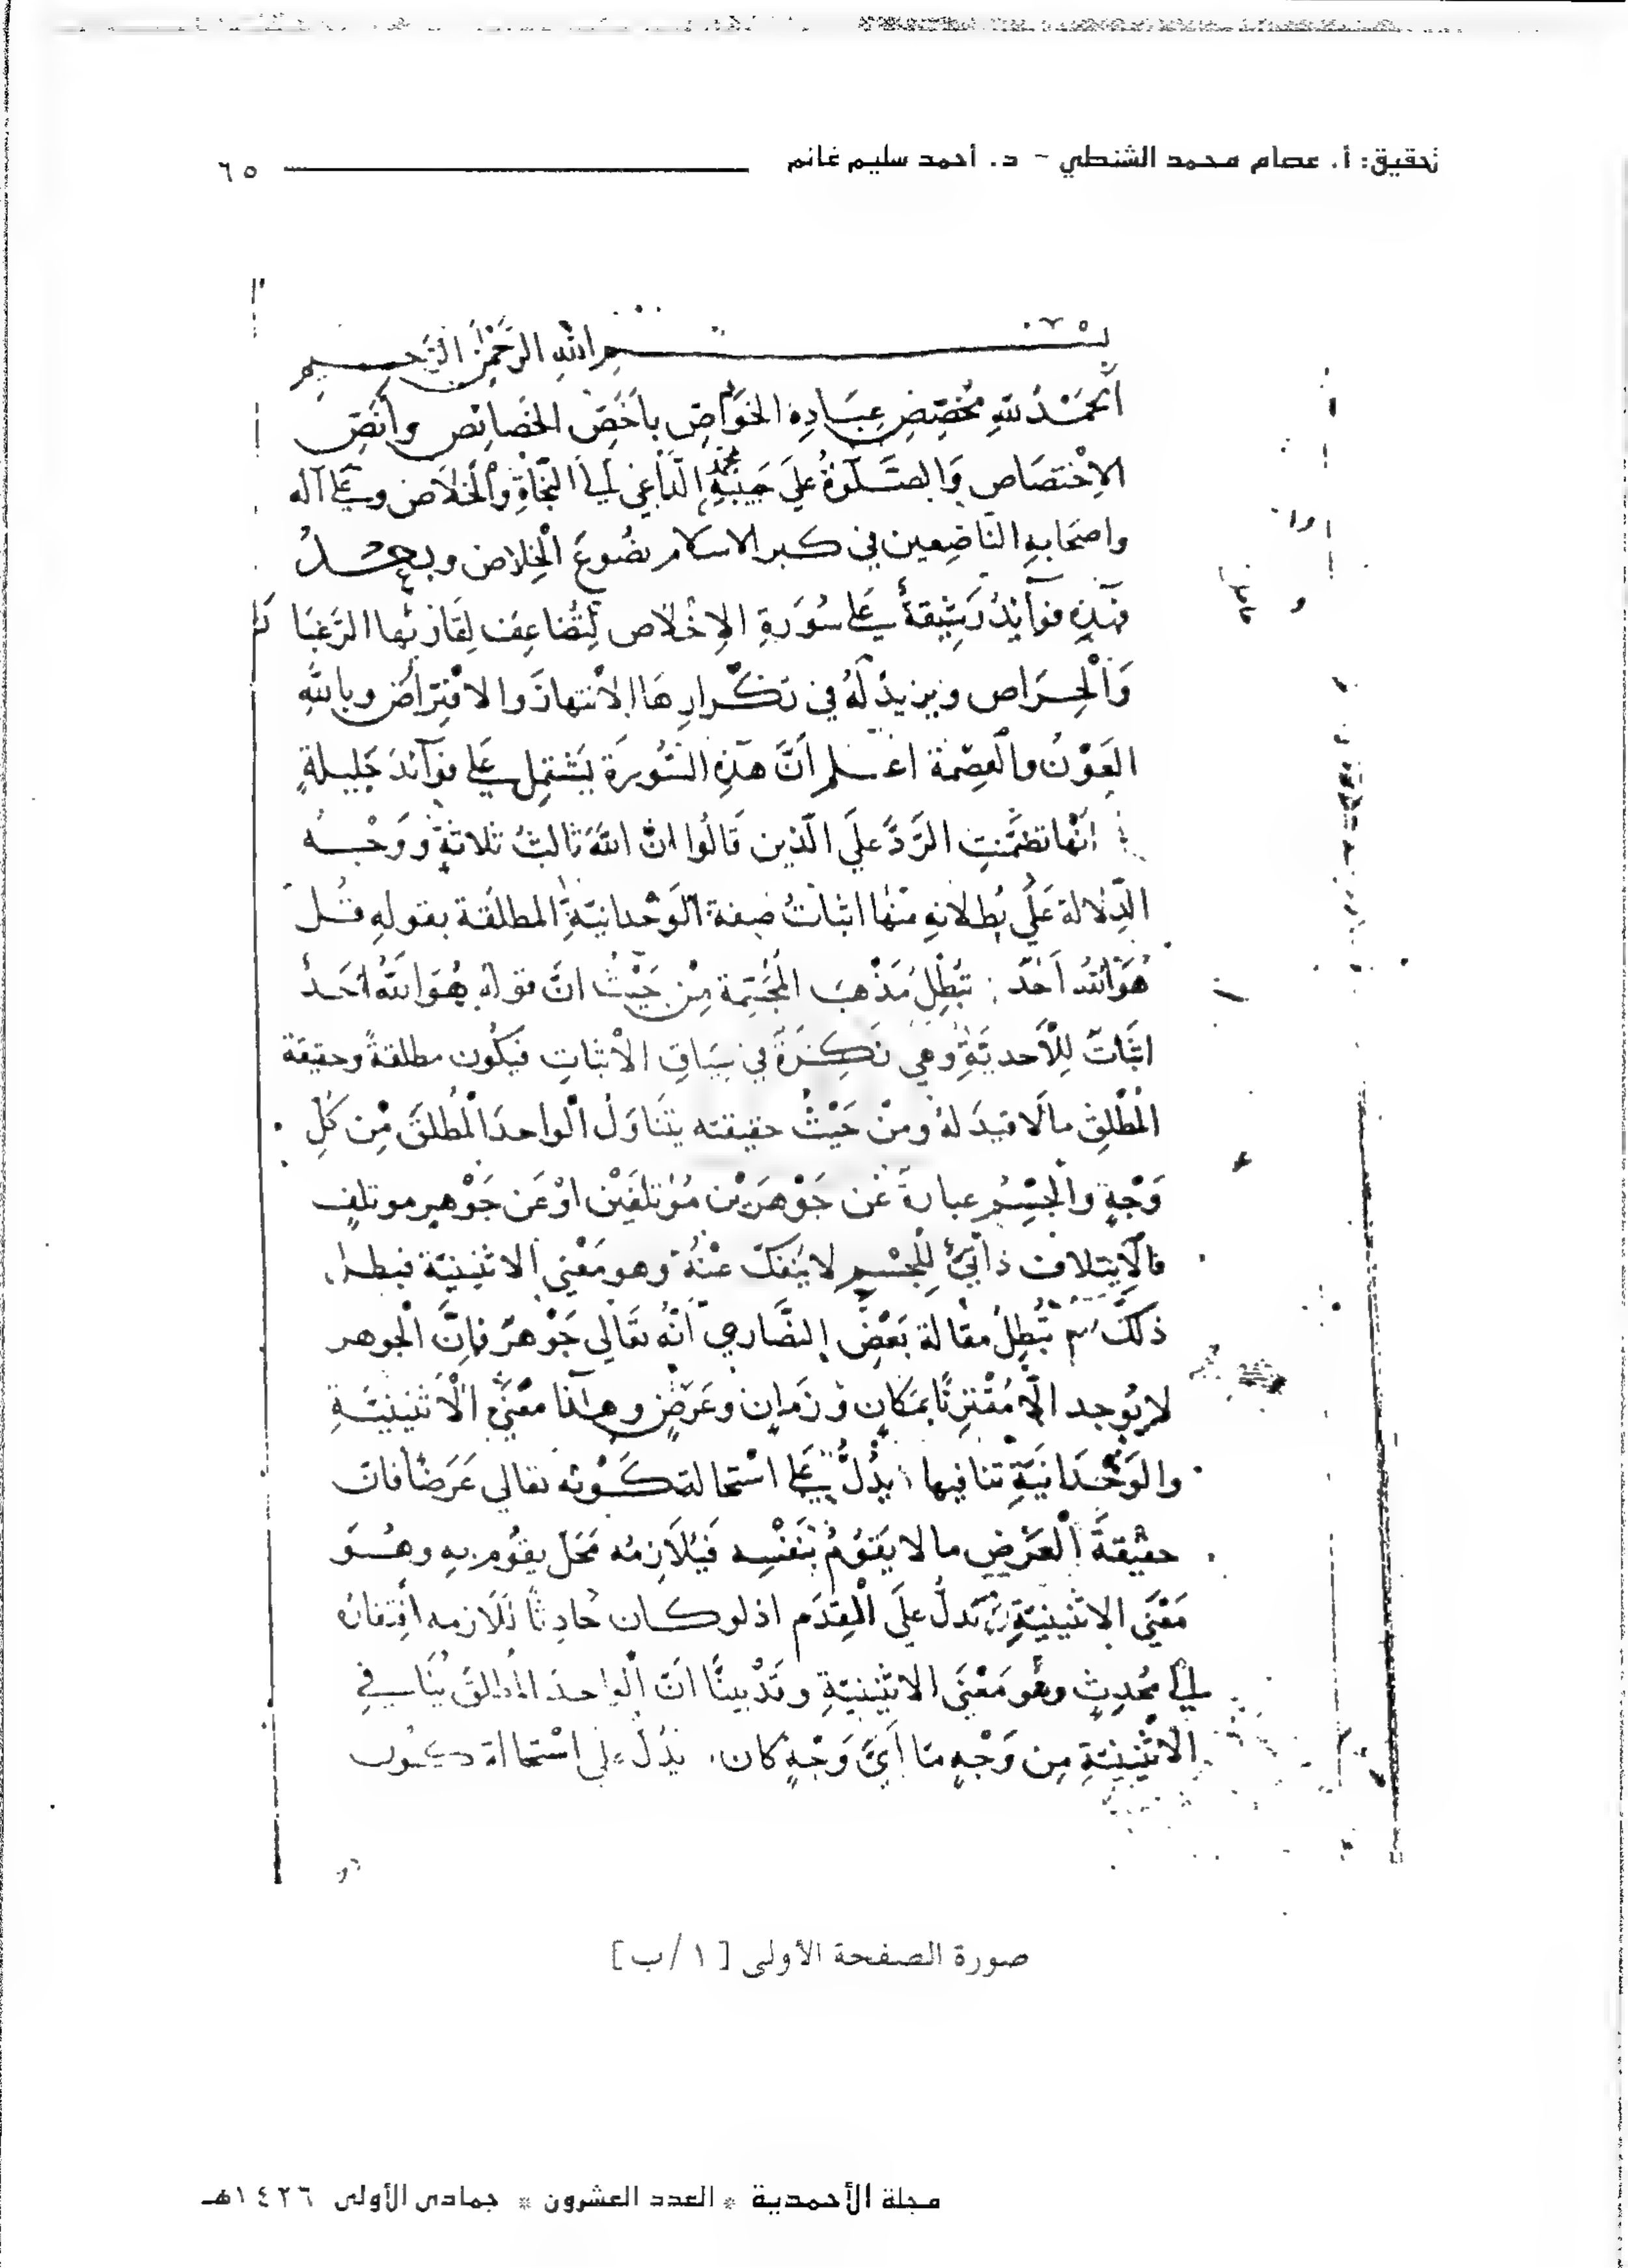 تحقيق: أ. عصام محمد الشنطي - د. أحمد سليم غانم ٦٥
بسم الله الرحمن الرحيم
اَلحَمْدُ للهِ مُخَصِّصِ عِبَادِهِ الخَوَاصِّ بأَخَصِّ الخَصائِص وأَنَصِّ
الاِخْتصَاص وَالصَّلَوةُ علَى حَبيبِهِ محمد الدَّاعِى إلى النَّجَاةِ وَالْخَلَاص وعلى آله
واصحَابِهِ النَّاصِعين في الاسلام نصُوعَ الْخِلاص وبعدُ
فهذِهِ فوآئِدُ رَشِيقةٌ على سُورَةِ الاِخْلَاص لِتُضَاعِف لِقَارِئها الرَّغبَا
وَالْحِرَاص ويزيدُ لَهُ في تَكْرارِهَا الاِنْتهازَ والافْتِرَاض وباللهِ
العَوْنُ والعِصْمَة اعلم أنَّ هذِهِ السُّورَةَ يَشْتمِل على فوآئدَ جَلِيلةٍ
أنَّها تضمَّنتِ الرَّدَّ علَى الَّذين قَالُوا انَّ اللهَ ثَالثُ ثلاثةٍ وَوَجْهُ
الدِّلَالة عَلَى بُطلانِهِ منها اثباتُ صِفة الوَحْدانيَّةِ المطلقة بقولِهِ قُل
هُوَ اللهُ أحَدٌ تُبْطِلُ مَذْهبَ المُجَسِّمة مِنْ حَيْثُ انَّ قوله هُوَ اللهُ احَدٌ
اثبَاتٌ لِلْأحديَّةِ وَهِيَ نَكِرَةٌ في سِيَاقِ الاثباتِ فيكُون مطلقةً وحقيقة
المُطْلقِ مالَا قيدَ لهُ ومنْ حَيْثُ حقيقته يتَنَاوَلُ الْواحدَ المُطلقَ مِن كُلِّ
وَجْهٍ والجِسْمُ عبارةٌ عَن جَوْهرَيْن مُؤتلفَيْن اوْ عَن جَوْهرٍ موتلفٍ
فالاِيتلاف ذاتيٌّ لِلْجسْم لا يَنفَكّ عنْهُ وهو مَعْنى الاثنينيّة فبطل
ذلكَ تُبْطِلُ مقالة بَعْض النَّصَارى أنَّه تعَالى جَوْهرٌ فإنَّ الجوهر
لا يُوجد الَّا مُقْترِنًا بمَكانٍ وَزَمانٍ وعَرَضٍ وهذا مَعْنَى الْاثنينِيَّةِ
والوَحْدَانيَّةِ تنافيها يدُلُّ على اسْتحالة كَوْنه تعَالى عَرَضًا فانَّ
حقيقةَ الْعَرَضِ ما لا يَقُومُ بِنَفْسِه فَيُلَازِمُه مَحَل يقُوم بِهِ وهُوَ
مَعْنَى الاثنينيَّةِ تَدلُّ علَى القِدَم اذ لو كان حَادِثًا لَلَازمه افتقارُه
إلى مُحْدِثٍ وهُو مَعْنَى الاثنينيّةِ وقَدْ بيّنَّا انّ الواحدَ المُطلقَ يُنَافي
الاثنينيّةِ مِن وَجْهٍ مّا أيَّ وَجْهٍ كان. يدُلّ على اسْتحالة كون
صورة الصفحة الأولى [ ١ / ب ]
مجلة الأحمدية * العدد العشرون * جمادى الأولى ١٤٢٦هـ